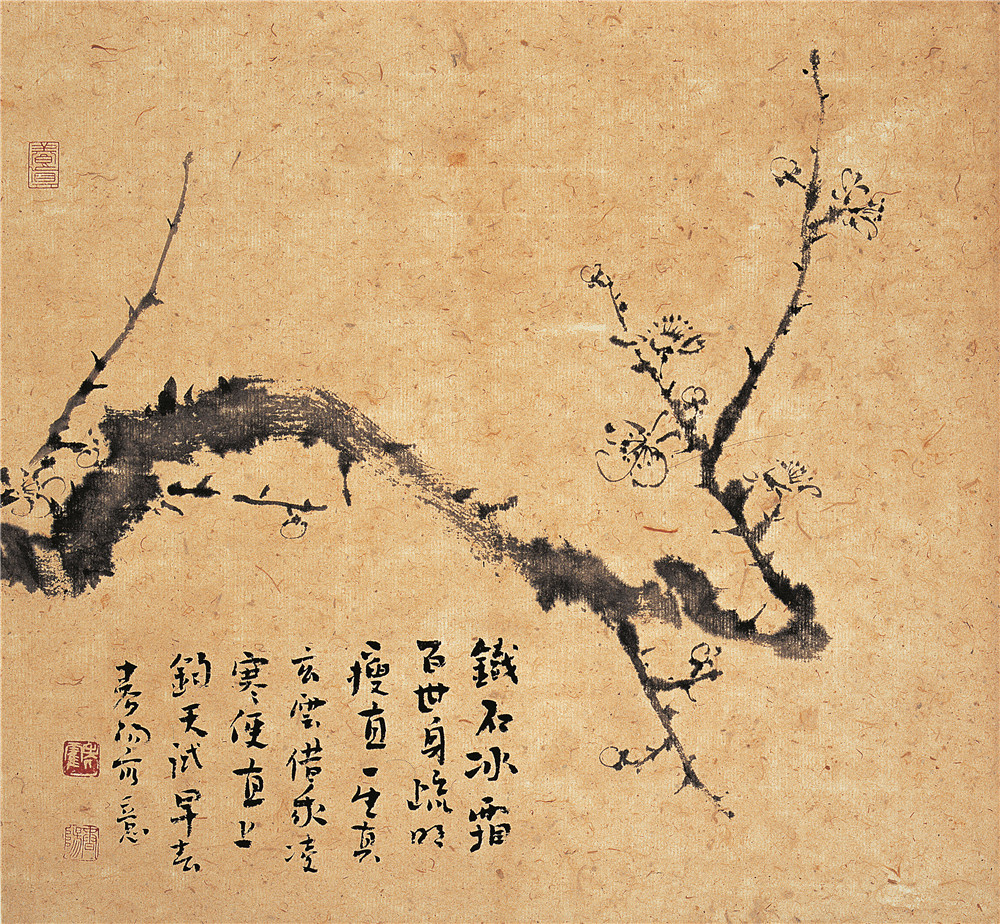 鐵石冰霜
百世身疏明
瘦直一生真
玄雲借我凌
寒便直上
鈞天試早
意